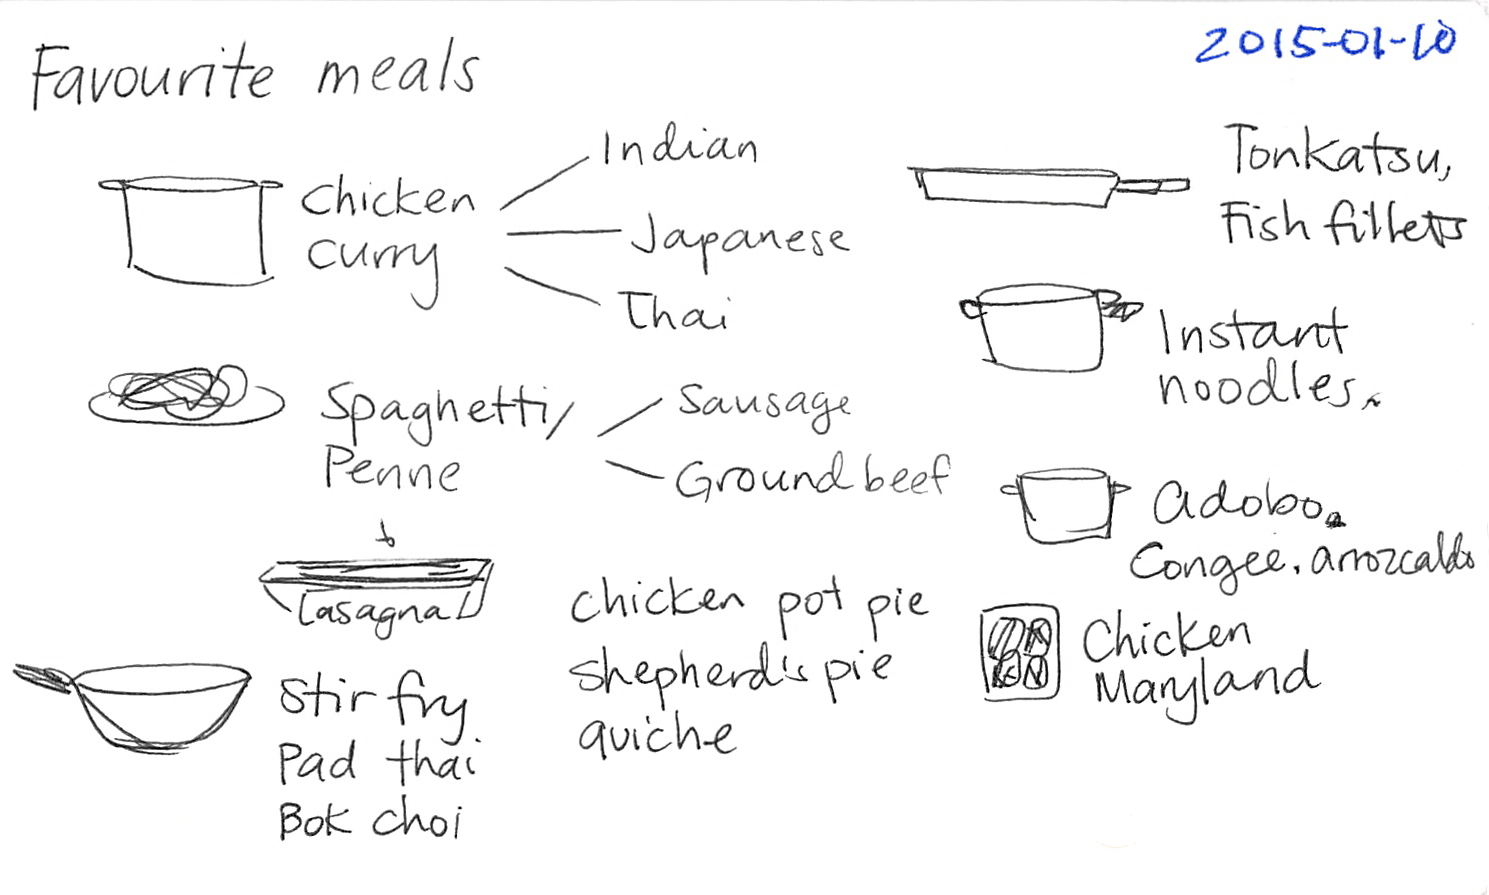 Favourite meals
2015-01-10
Chicken
curry
Indian
Japanese
Thai
Spaghetti/
Penne
Sausage
Ground beef
Lasagna
Stir fry
Pad thai
Bok choi
chicken pot pie
shepherd's pie
quiche
Tonkatsu,
Fish fillets
Instant
noodles
Adobo
Congee, arrozcaldo
Chicken
Maryland